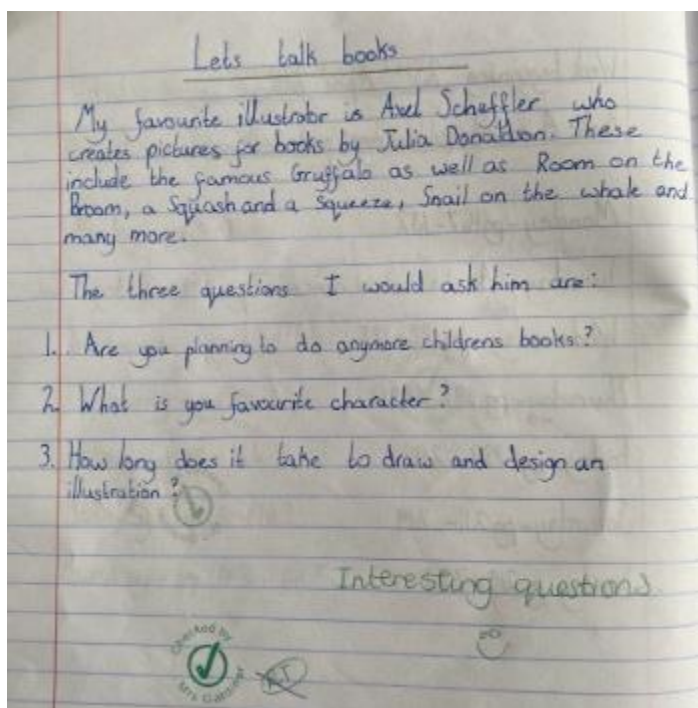 Lets talk books
My favourite illustrator is Axel Scheffler who
creates pictures for books by Julia Donaldson. These
include the famous Gruffalo as well as Room on the
Broom, a Squash and a Squeeze, Snail on the whale and
many more.
The three questions I would ask him are:
1. Are you planning to do anymore childrens books?
2. What is you favourite character?
3. How long does it take to draw and design an
illustration?
Interesting questions.
Checked by
Mrs